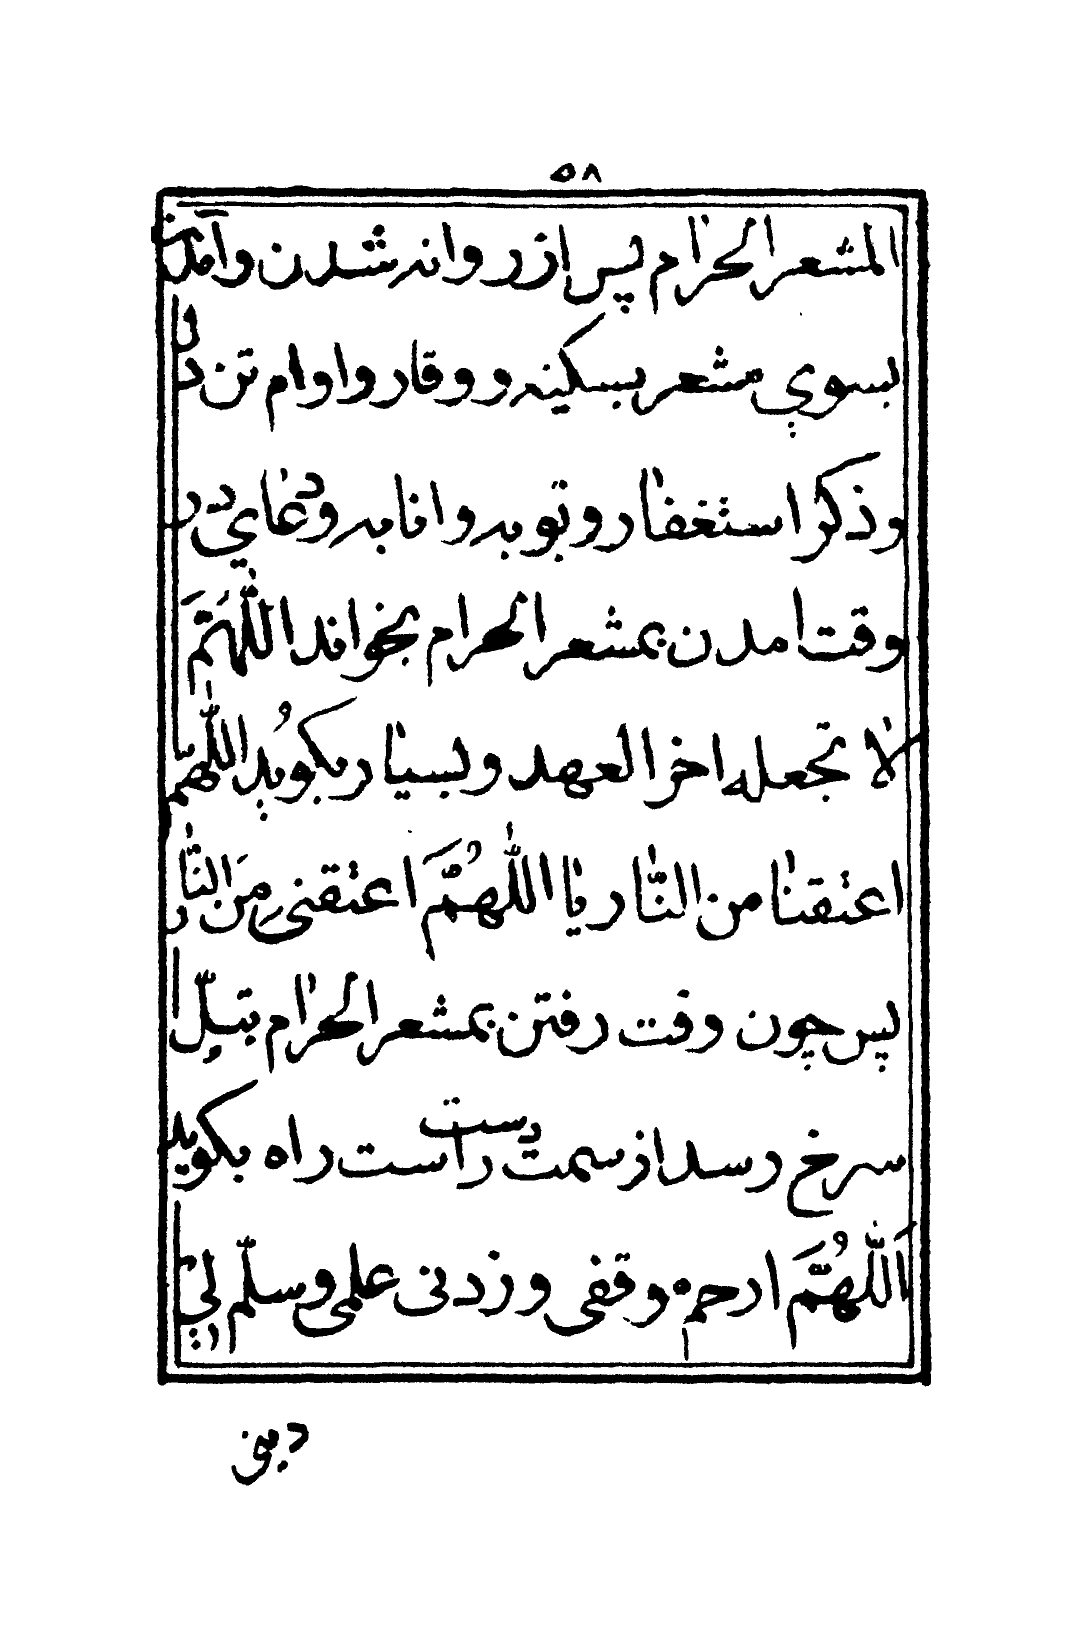 ۵۸
المشعر الحرام پس از روانه شدن وآمدن
بسوي مشعر بسكينه ووقار واوام تن دل
وذكر استغفار وتوبه وانابه ودعاي در
وقت امدن بمشعر الحرام بخواند اللّٰهمَّ
لا تجعله اخر العهد وبسيار بكويد اللّٰهمّ
اعتقنا من النّار يا اللّٰهُمَّ اعتقنى مِنَ النّار
پس چون وقت رفتن بمشعر الحرام بتلّ
سرخ رسد از سمت دست راست راه بكويد
اَللّٰهُمَّ ارحم وقفى وزدنى علمى وسلّم لي
دينى